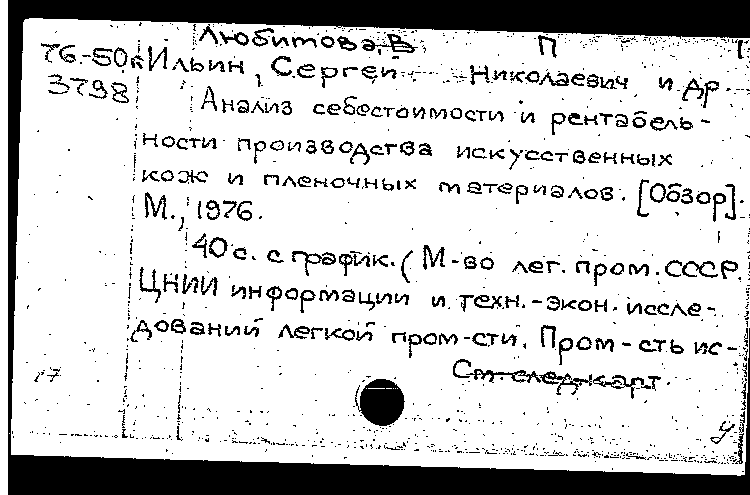 Любитова, В П
76-50к Ильин, Сергей Николаевич и др
3798 Анализ себестоимости и рентабель-
ности производства искусственных
кож и пленочных материалов. [Обзор].
М., 1976.
40 с. с график. (М-во лег. пром. СССР.
ЦНИИ информации и техн.-экон. иссле-
дований легкой пром-сти. Пром-сть ис-
См. след. карт.
17
у